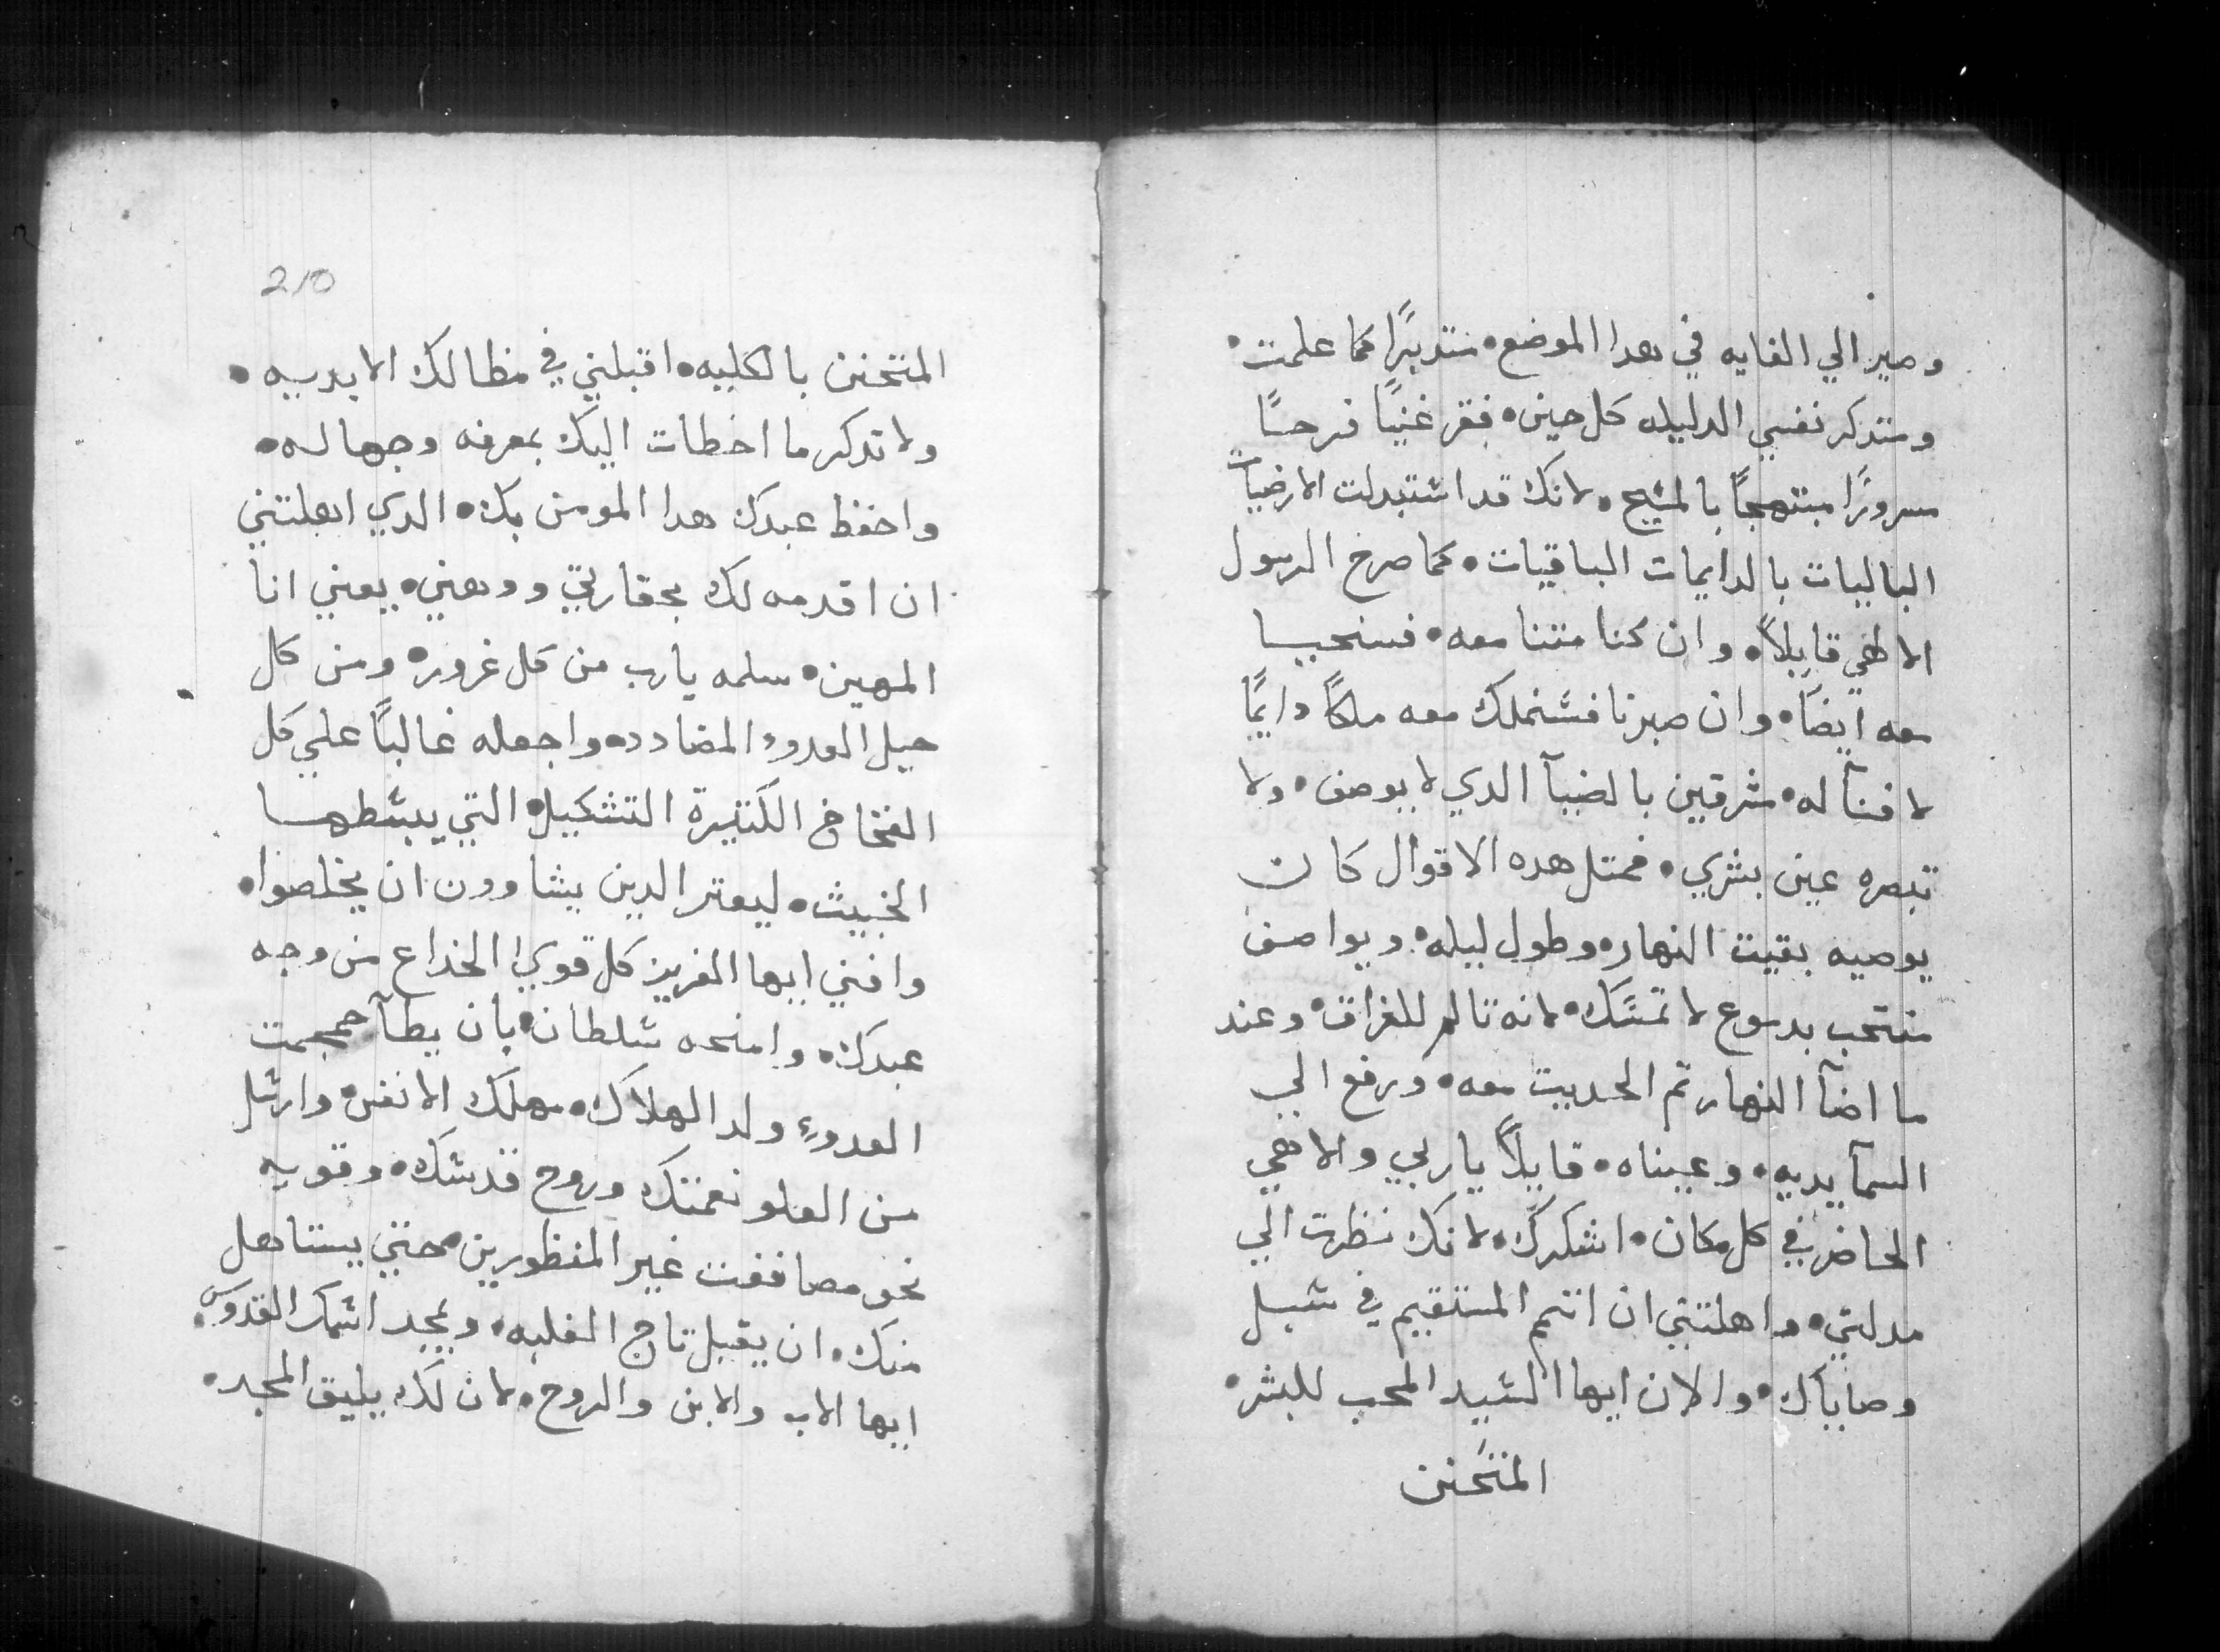 وصير الي الغايه في هدا الموضع• متدبرًا كما علمت•
ومتدكر نفسي الدليله كل حين• فقر غنيًا فرحًا
مسرورًا مبتهجًا بالمشيح• لانك قد اشتبدلت الارضيات
الباليات بالدايمات الباقيات• كما صرخ الرسول
الاطهي قايلاً• وان كنا متنا معه• فسنحيا
معه ايضًا• وان صبرنا فشنملك معه ملكًا دايمًا
لا فنآ له• مشرقين بالضيآ الدي لا يوصف• ولا
تبصره عين بشري• فمتل هده الاقوال كان
يوصيه بقيت النهار• وطول ليله• ويواصف
منتحب بدموع لا تمسك• لانه تالم للفراق• وعند
ما اضآ النهار تم الحديت معه• ورفع الي
السمآ يديه• وعيناه• قايلاً ياربي والاهي
الحاضر في كل مكان• اشكرك• لانك نظرت الي
مدلتي• واهلتني ان اتمم المستقيم في شبل
وصاياك• والان ايها الشيد المحب للبشر•
المتحنن
210
المتحنن بالكليه• اقبلني في مظالك الابديه•
ولا تدكر ما اخطات اليك بمعرفه وجهاله•
واحفظ عبدك هدا المومن بك• الدي اهلتني
ان اقدمه لك بحقارتي ووهني• يعني انا
المهين• سلمه يارب من كل غرور• ومن كل
حيل العدوء المضادده واجعله غالبًا علي كل
الفخاخ الكتيرة التشكيل• التي يبشطها
الخبيث• ليعتر الدين يشاوون ان يخلصوا•
وافني ايها العزيز كل قوي الخداع من وجه
عبدك• وامنحه شلطان• بان يطآ جمجمت
العدوء ولد الهلاك• مهلك الانفس• وارشل
من العلو نعمتك وروح قدشك• وقويه
نحو مصاففت غير المنظورين• حتي يستاهل
منك• ان يقبل تاج الغلبه• ويمجد اشمك القدوس•
ايها الاب والابن والروح• لان لك يليق المجد•